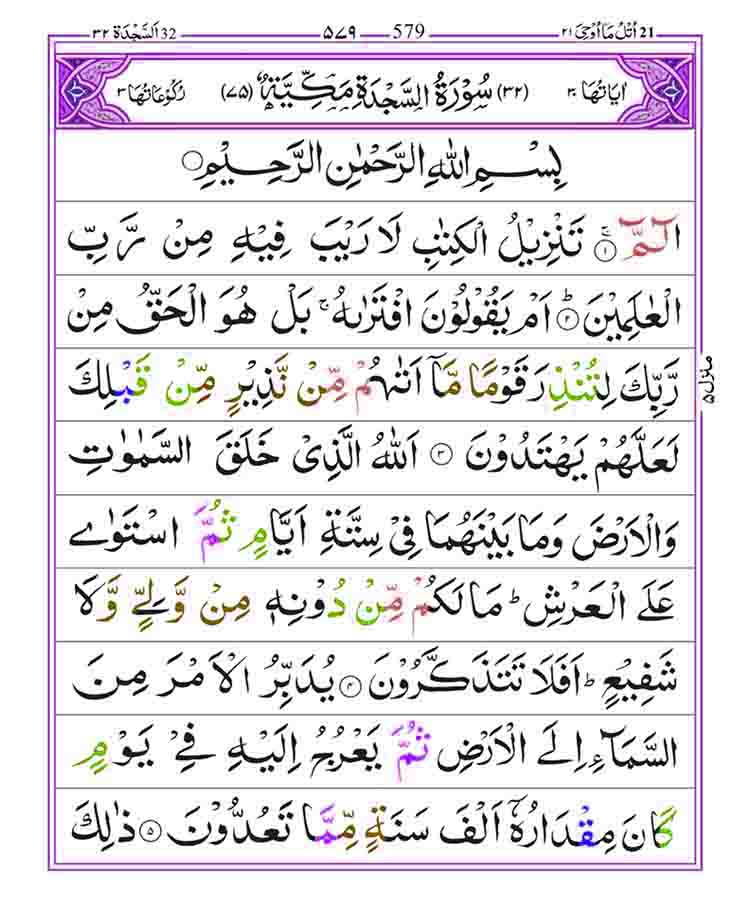 21 اُتْلُ مَآ اُوْحِیَ ۲۱ 579 ۵۷۹ 32 اَلسَّجْدَة ۳۲
اٰیَاتُهَا ۳۰ (۳۲) سُوْرَةُ السَّجْدَةِ مَكِّیَّةٌ (۷۵) رُكُوْعَاتُهَا ۳
بِسْمِ اللّٰهِ الرَّحْمٰنِ الرَّحِیْمِ
الٓمّٓ ۚ۝۱ تَنْزِیْلُ الْكِتٰبِ لَا رَیْبَ فِیْهِ مِنْ رَّبِّ
الْعٰلَمِیْنَ ؕ۝۲ اَمْ یَقُوْلُوْنَ افْتَرٰىهُ ۚ بَلْ هُوَ الْحَقُّ مِنْ
رَّبِّكَ لِتُنْذِرَ قَوْمًا مَّاۤ اَتٰىهُمْ مِّنْ نَّذِیْرٍ مِّنْ قَبْلِكَ
لَعَلَّهُمْ یَهْتَدُوْنَ ۝۳ اَللّٰهُ الَّذِیْ خَلَقَ السَّمٰوٰتِ
وَالْاَرْضَ وَمَا بَیْنَهُمَا فِیْ سِتَّةِ اَیَّامٍ ثُمَّ اسْتَوٰی
عَلَی الْعَرْشِ ؕ مَا لَكُمْ مِّنْ دُوْنِهٖ مِنْ وَّلِیٍّ وَّلَا
شَفِیْعٍ ؕ اَفَلَا تَتَذَكَّرُوْنَ ۝۴ یُدَبِّرُ الْاَمْرَ مِنَ
السَّمَآءِ اِلَی الْاَرْضِ ثُمَّ یَعْرُجُ اِلَیْهِ فِیْ یَوْمٍ
كَانَ مِقْدَارُهٗۤ اَلْفَ سَنَةٍ مِّمَّا تَعُدُّوْنَ ۝۵ ذٰلِكَ
منزل ۵